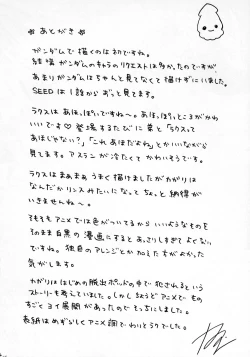 ※ あとがき ※
ガンダムで描くのは初ですね。
結構ガンダムのキャラのリクエストは多かったのですが、
あまりガンダムはちゃんと見てなくて描けずにいました。
SEEDは1話からずっと見てます。
ラクスはあほっぽいですね〜。あほっぽいところがかわ
いいです♡ 登場するたびに 「ラクスて
あほじゃない？」「これあほだよね」とかいいながら
見てます。アスランが冷たくてかわいそうです。
ラクスはまあまあうまく描けましたがカガリは
なんだかリンスみたいになってちょっと納得が
いきませんね〜。
そもそもアニメでは色がついてるからいいようなものを
そのまま白黒の漫画にするとあっさりしすぎてよくない
ですね。独自のアレンジとか加えた方がよかった
気がします。
カガリははじめの脱出ポッドの中で犯されるという
ストーリーも考えていました。しかしきのうアニメでもの
すごくヨイ展開があったのでこっちにしました。
表紙はめずらしくアニメ調でわりとうりでした。